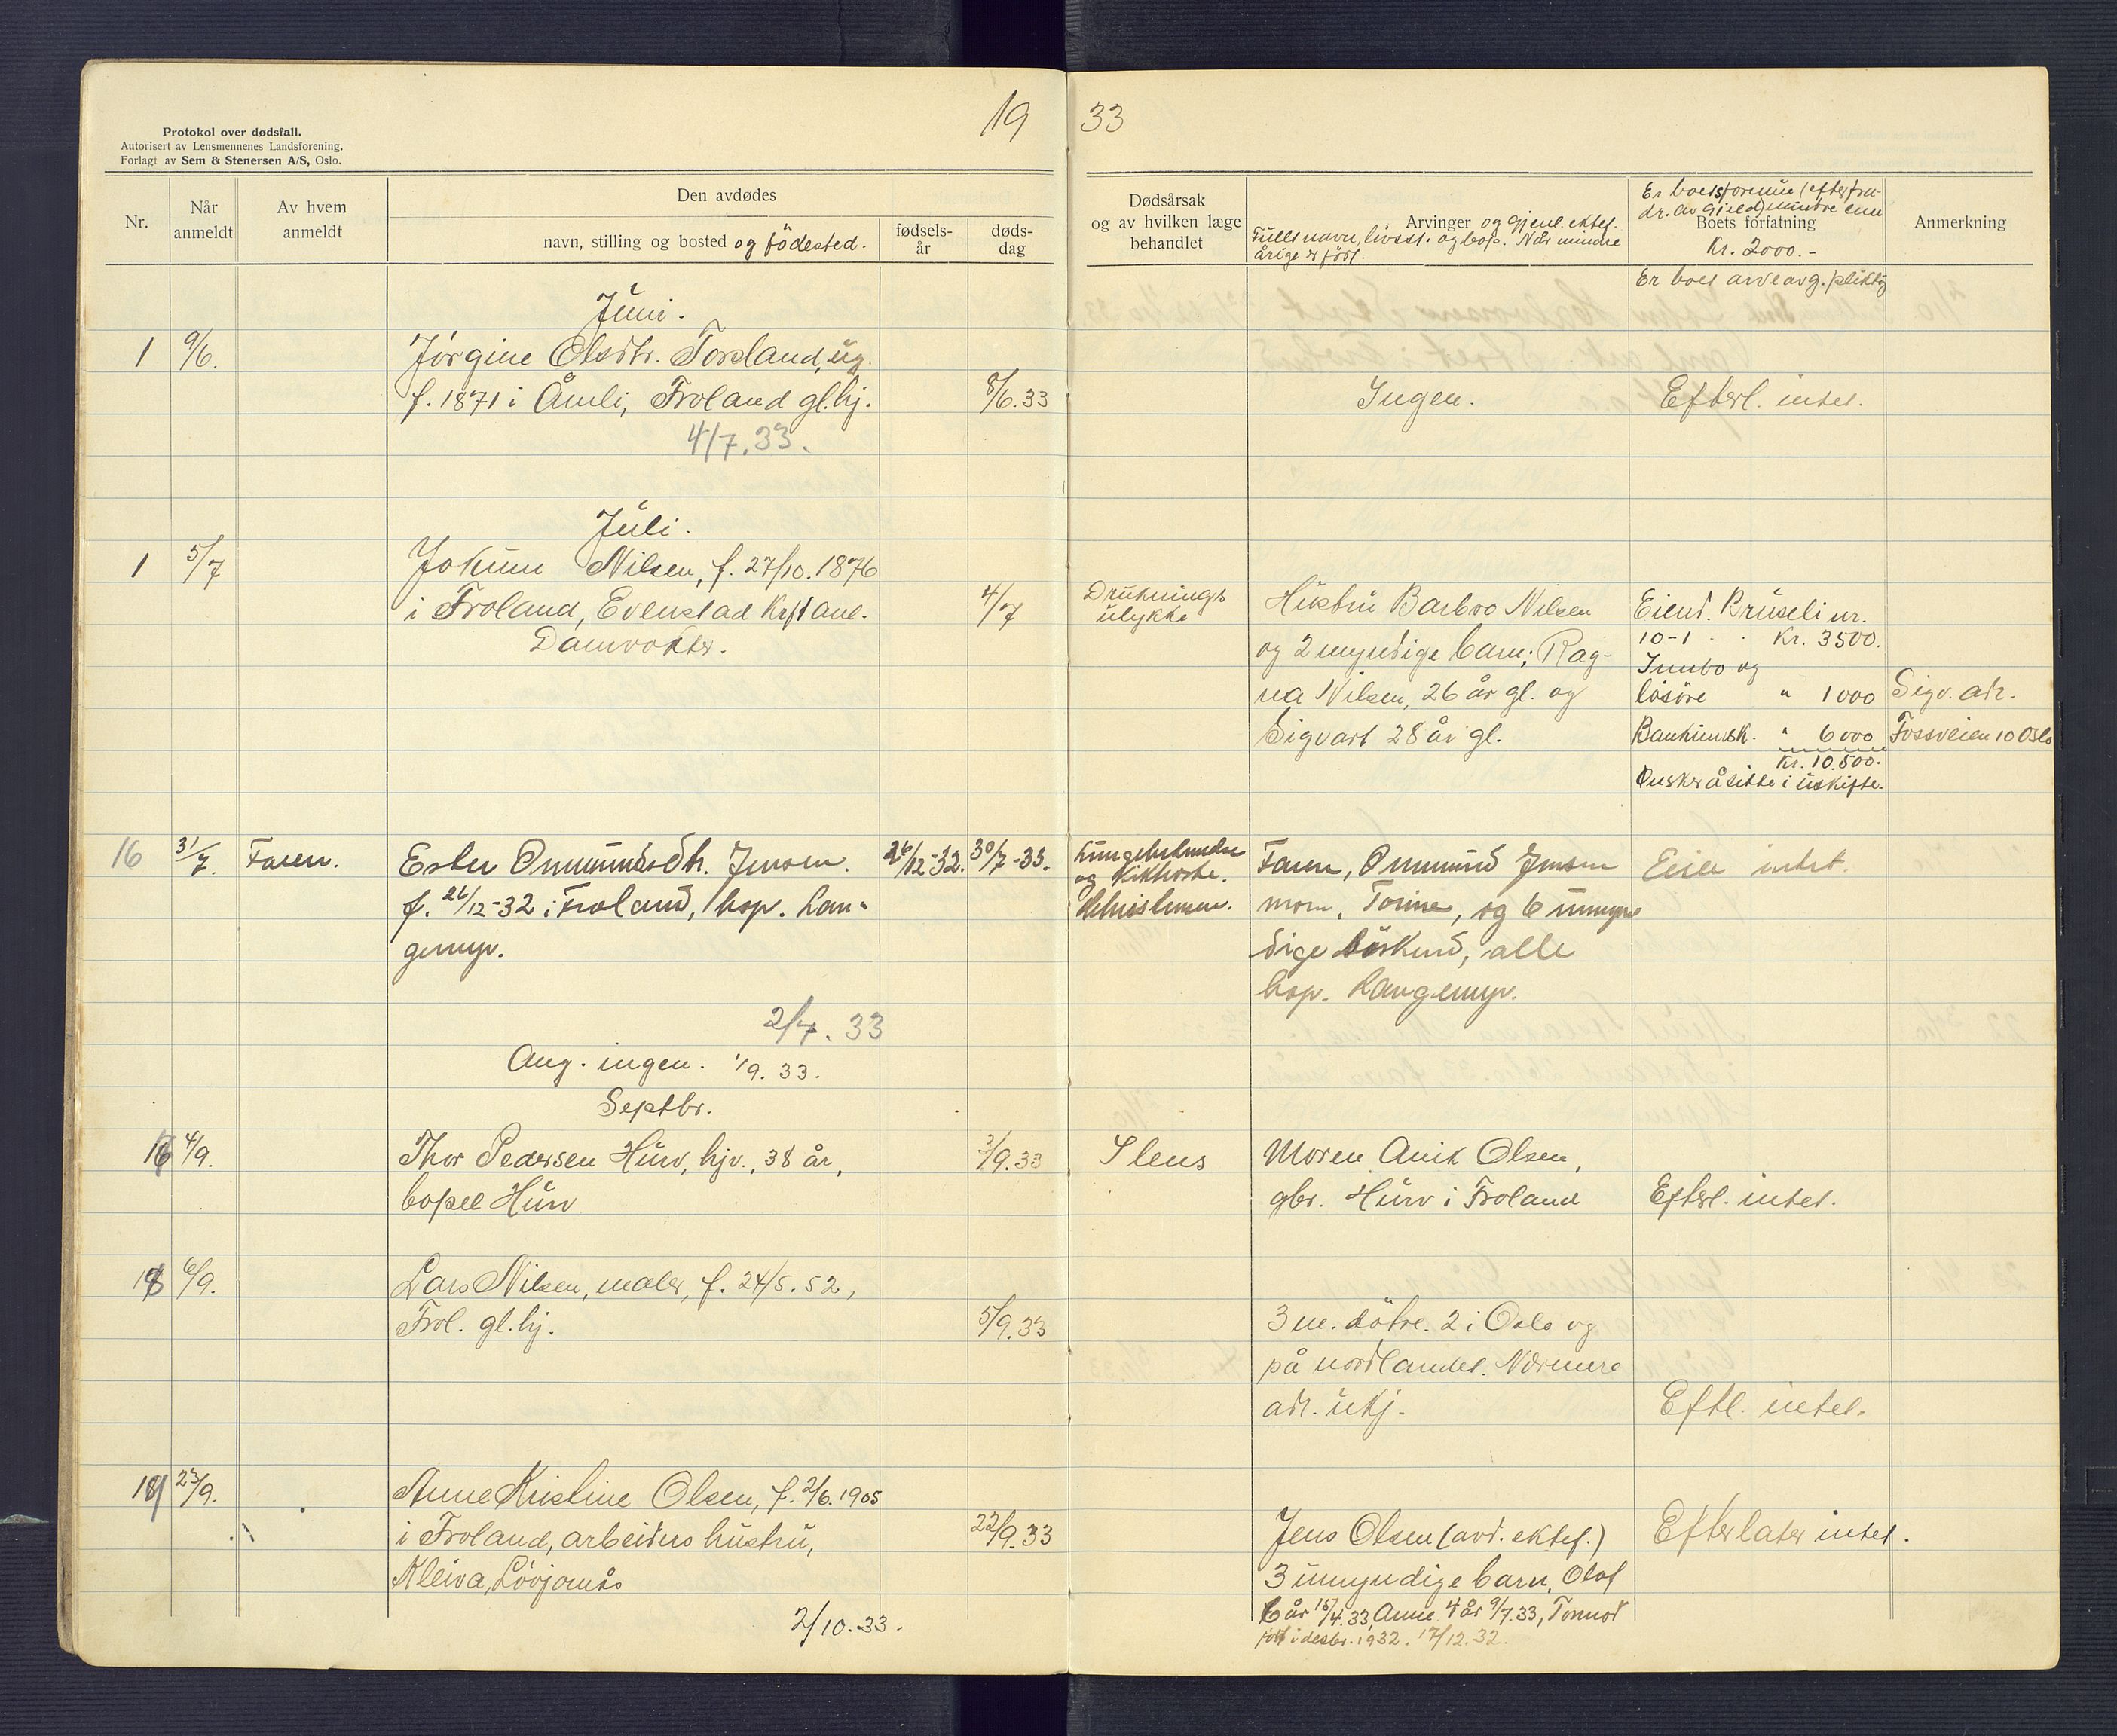 19 33
Protokol over dødsfall.
Autorisert av Lensmennenes Landsforening.
Forlagt av Sem & Stenersen A/S, Oslo.
Nr.
Når anmeldt
Av hvem anmeldt
Den avdødes
navn, stilling og bosted og födested.
fødsels-
år
døds-
dag
Dødsårsak
og av hvilken læge
behandlet
Arvinger og gjenl. ektef.
Fullt navn, livsst. og bop. Når mindre
årige er født.
Er boets formue (efter fra-
dr. av gjeld) mindre enn
Boets forfatning
Kr. 2000.-
Er boet arveavg. pliktig
Anmerkning
Juni.
1 9/6. Jørgine Olsdtr. Torsland, ug.
f. 1871 i Åmli, Froland gl.hj. 8/6.33 Ingen. Efterl. intet.
4/7.33.
Juli.
1 5/7 Jokum Nilsen, f. 27/10.1876
i Froland, Evenstad Krft anl. 4/7
Damvokter.
Druknings
ulykke
Hustru Barbro Nilsen
og 2 myndige barn; Rag-
na Nilsen, 26 år gl. og
Sigvart 28 år gl.
Eiend. Bruseli nr.
10-1 Kr. 3500.
Innbo og
løsøre " 1000
Bankinnsk. " 6000
Kr. 10.500.
Ønsker å sitte i uskifte.
Sigv. adr.
Fossveien 10 Oslo
16 31/7. Faren. Ester Ommundsdtr. Jensen. 26/12-32. 30/7-33.
f. 26/12-32 i Froland, bop. Lan-
gemyr.
Lungebetendelse
og Kikhoste.
Faren, Ommund Jensen
moren, Torine, og 6 umyn-
dige søsken, alle
bop. Langemyr.
Eier intet.
2/7. 33
Aug. ingen. 1/9. 33.
Septbr.
16 4/9. Thor Pedersen Hurv, hjv., 38 år, 3/9.33
bopel Hurv
Ilens
Moren Anik Olsen,
gbr. Hurv i Froland
Efterl. intet.
18 6/9. Lars Nilsen, maler, f. 24/5.52,
Frol. gl.hj. 5/9.33
3 m. døtre. 2 i Oslo og
på nordlandet. Nærmere
adr. ukj.
Eftl. intet.
18 23/9. Anne Kristine Olsen, f. 2/6.1905
i Froland, arbeiders hustru, 22/9.33
Kleiva, Løvjomås
Jens Olsen (avd. ektef.)
3 umyndige barn, Olof
6 år 15/4.33, Anne 4 år 9/7.33, Tormod
født i desbr. 1932. 17/12.32.
Efterlater intet.
2/10.33.